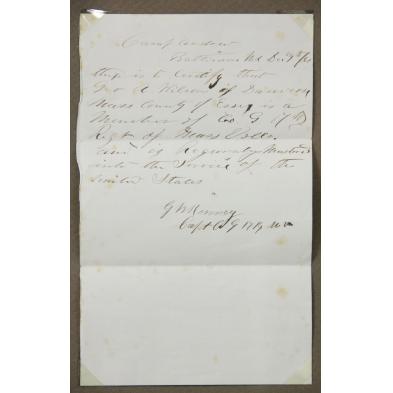 Camp Andrew
Baltimore Md Dec 9th
this is to Certify that
Geo A Wilson of
Mass County of Essex is a
Member of Co G 17th
Regt of Mass
and is Regularly Mustered
into the Service of the
United States
G W Kenney
Capt Co G 17th